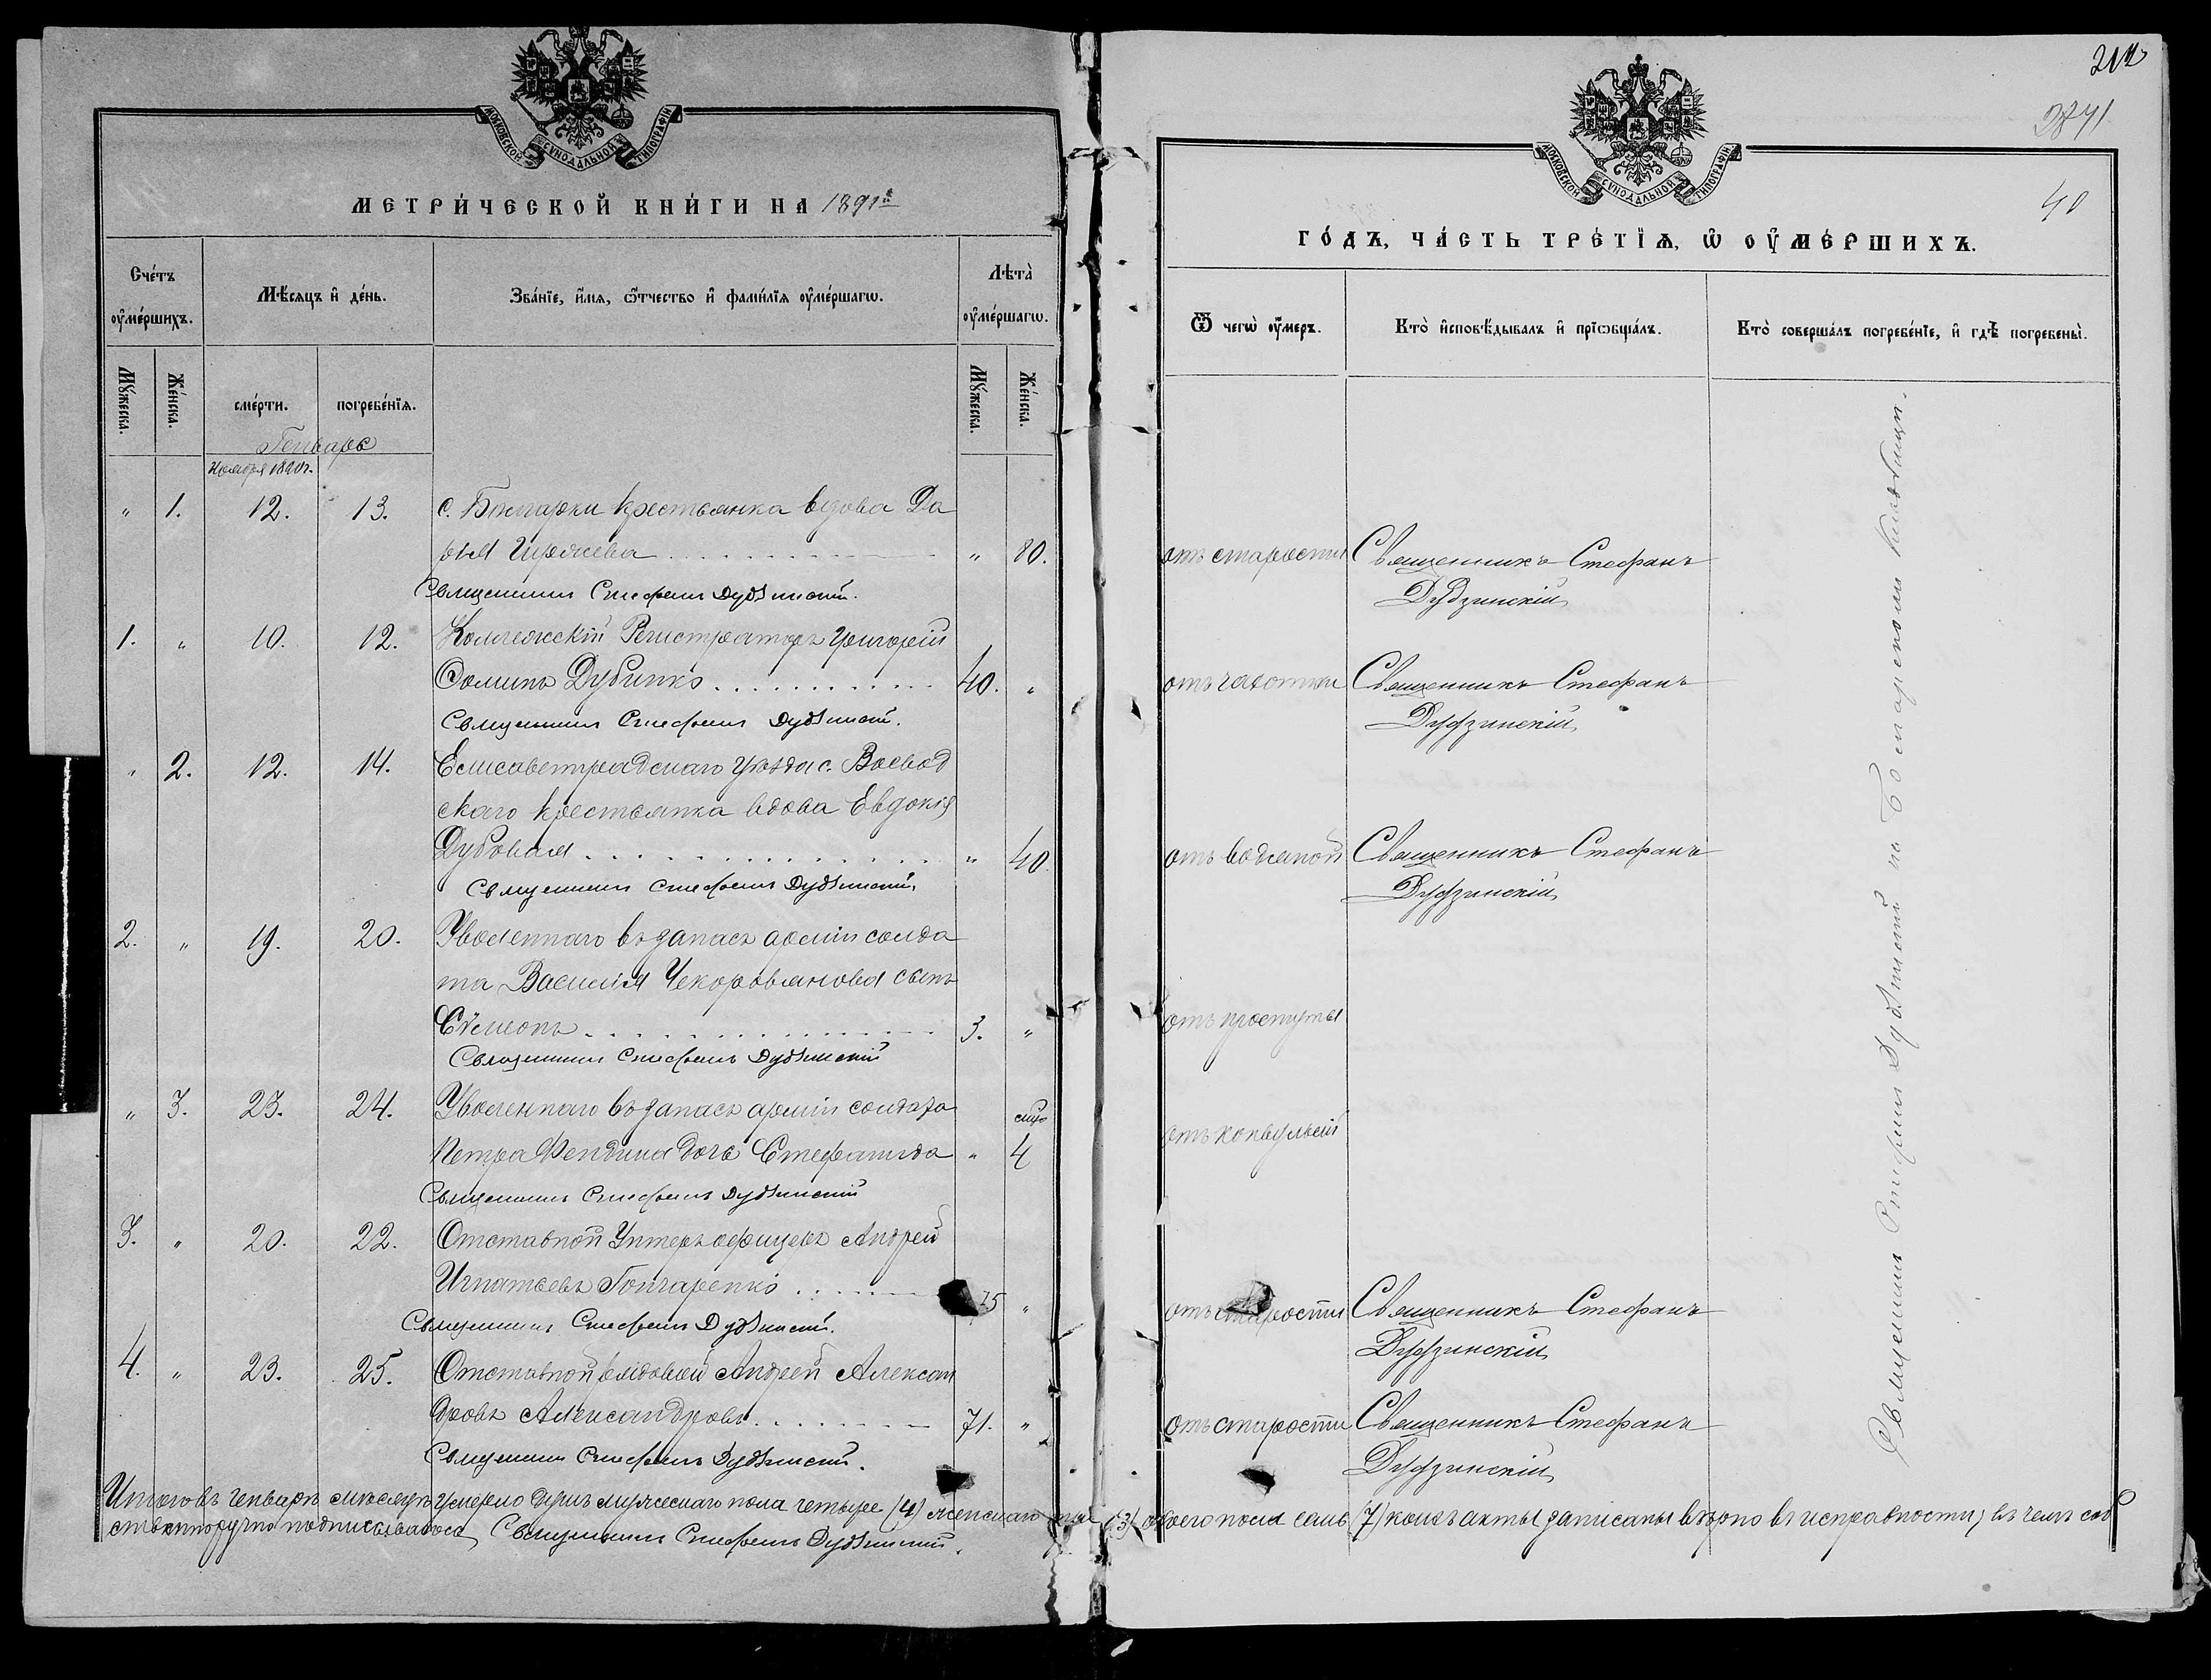 МОСКОВСКОЙ СУНОДАЛЬНОЙ ТИПОГРАФІИ
МЕТРИЧЕСКОЙ КНИГИ НА 1891й
Счетъ оумершихъ.
Мѣсяцъ и день.
Званіе, имя, отчество и фамилія оумершагω.
Лѣта оумершагω.
Мужеска.
Женска.
смерти.
погребенія.
Мужеска.
Женска.
Генварь
Ноября 1890г.
„ 1. 12. 13. с. Болгарки крестьянка вдова Да
рія . . . „ 80.
Священникъ Стефанъ Дудзинскій.
1. „ 10. 12. Коллежскій Регистраторъ Григорій
Фоминъ Дубинко . . . 40. „
Священникъ Стефанъ Дудзинскій.
„ 2. 12. 14. Елисаветградскаго уѣзда с. Воевод
скаго крестьянка вдова Евдокія
Дубовая . . . „ 40.
Священникъ Стефанъ Дудзинскій
2. „ 19. 20. Уволеннаго въ запасъ арміи солда
та Василія сынъ
Сѵмеонъ . . . 3. „
Священникъ Стефанъ Дудзинскій
„ 3. 23. 24. Уволеннаго въ запасъ арміи солдата
Петра дочь Стефанида „ 4
Священникъ Стефанъ Дудзинскій
3. „ 20. 22. Отставной Унтеръ офицеръ Андрей
Игнатьевъ Гончаренко . . . 75 „
Священникъ Стефанъ Дудзинскій.
4. „ 23. 25. Отставной рядовой Андрей Алексан
дровъ Александровъ . . . 71. „
Священникъ Стефанъ Дудзинскій.
Итого въ генварѣ мѣсяцѣ умерло душъ мужескаго пола четыре (4) женскаго три (3) обоего пола семь (7) коихъ акты записаны вѣрно въ исправности; въ чемъ соб
ственноручно подписываюсь Священникъ Стефанъ Дудзинскій.
МОСКОВСКОЙ СУНОДАЛЬНОЙ ТИПОГРАФІИ
40
ГОДЪ, ЧАСТЬ ТРЕТІЯ, Ѡ ОУМЕРШИХЪ.
Ѿ чегω оумеръ.
Кто исповѣдывалъ и пріωбщалъ.
Кто совершалъ погребеніе, и гдѣ погребены.
отъ старости Священникъ Стефанъ
Дудзинскій
отъ чахотки Священникъ Стефанъ
Дудзинскій
отъ водяной Священникъ Стефанъ
Дудзинскій
отъ простуды
отъ конвульсій
отъ старости Священникъ Стефанъ
Дудзинскій
отъ старости Священникъ Стефанъ
Дудзинскій
Священникъ Стефанъ Дудзинскій на Болгарскомъ кладбищѣ.